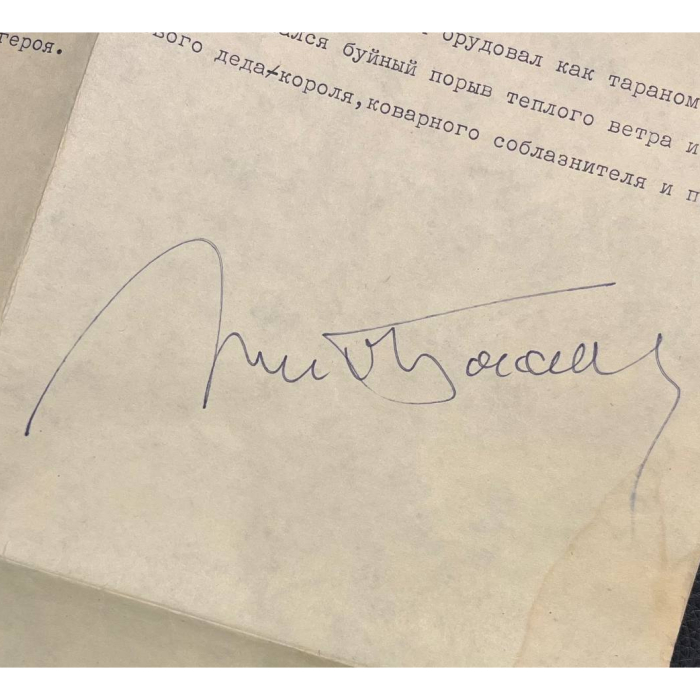 героя.
орудовал как тараном
ался буйный порыв теплого ветра и
вого деда-короля,коварного соблазнителя и п